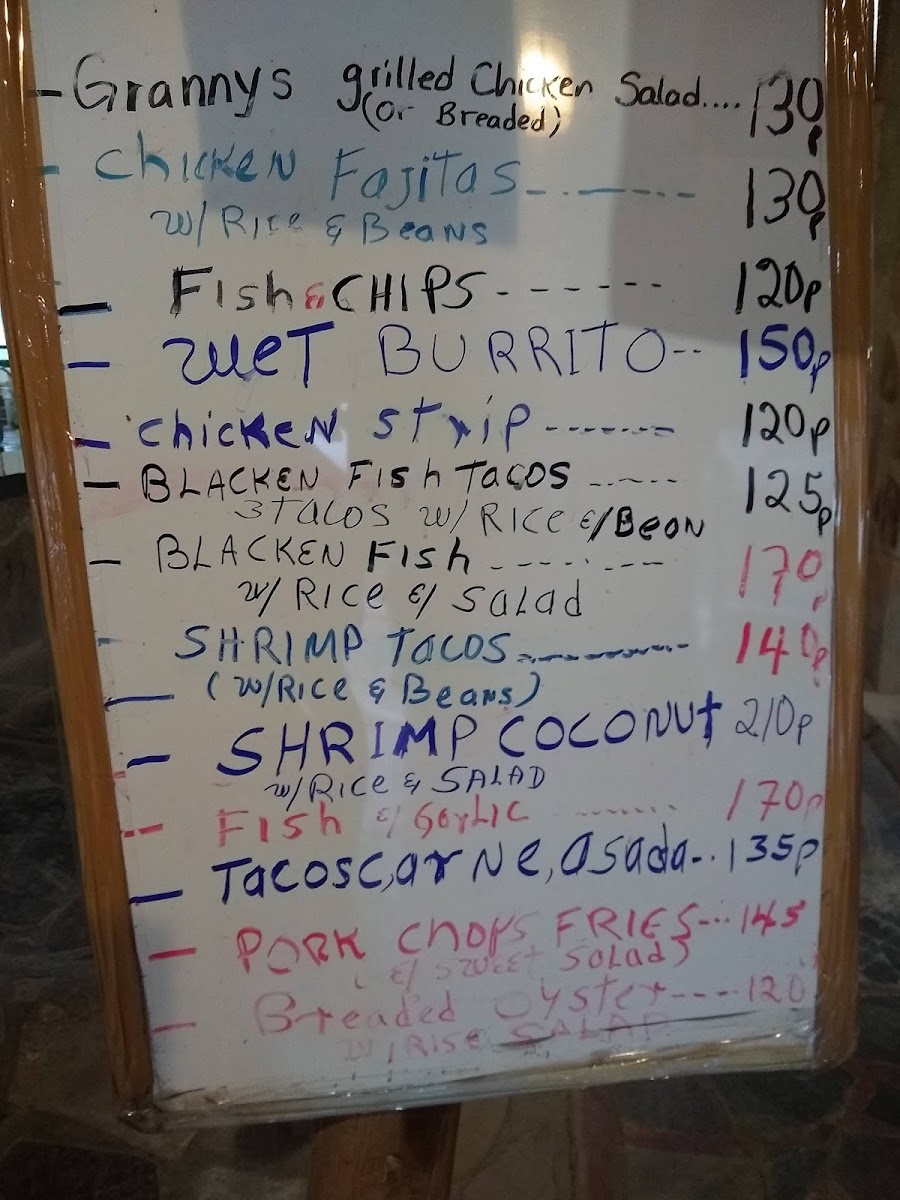 - Grannys grilled Chicken Salad.... 130p
(or Breaded)
- Chicken Fajitas ------- 130p
w/ Rice & Beans
- Fish & CHIPS ------- 120p
- Wet BURRITO -- 150p
- Chicken Strip ------- 120p
- BLACKEN Fish TACOS ------ 125p
3 TACOS w/ RICE &/BEON
- BLACKEN Fish -------- 170p
w/ RICE &/ SALAD
- SHRIMP TACOS -------- 140p
- (w/RICE & Beans)
- SHRIMP COCONUT 210p
w/RICE & SALAD
- Fish &/ Garlic ------ 170p
- TACOS Carne, asada-.. 135p
- PORK Chops FRIES--... 145
( &/ SWEET SALAD)
- Breaded Oyster---- 120
w/ RISE SALAD